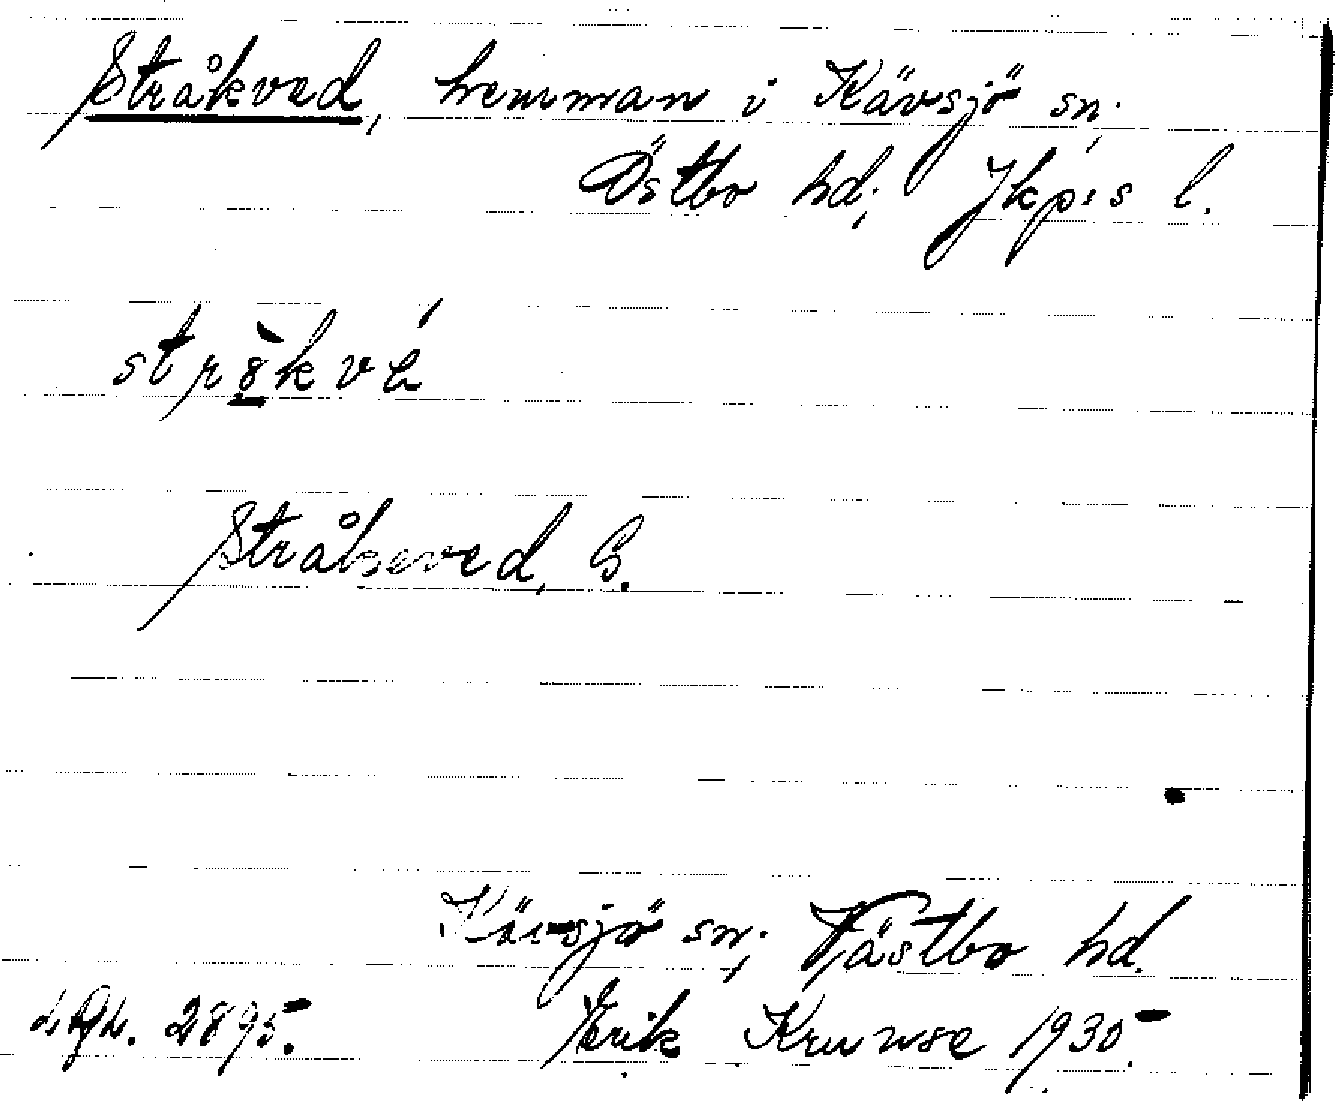 Stråkved, hemman i Kävsjö sn;
Östbo hd; Jkp:s l.
Stråkeved, G.
Kävsjö sn; Västbo hd.
2895. Erik Kruuse 1930.